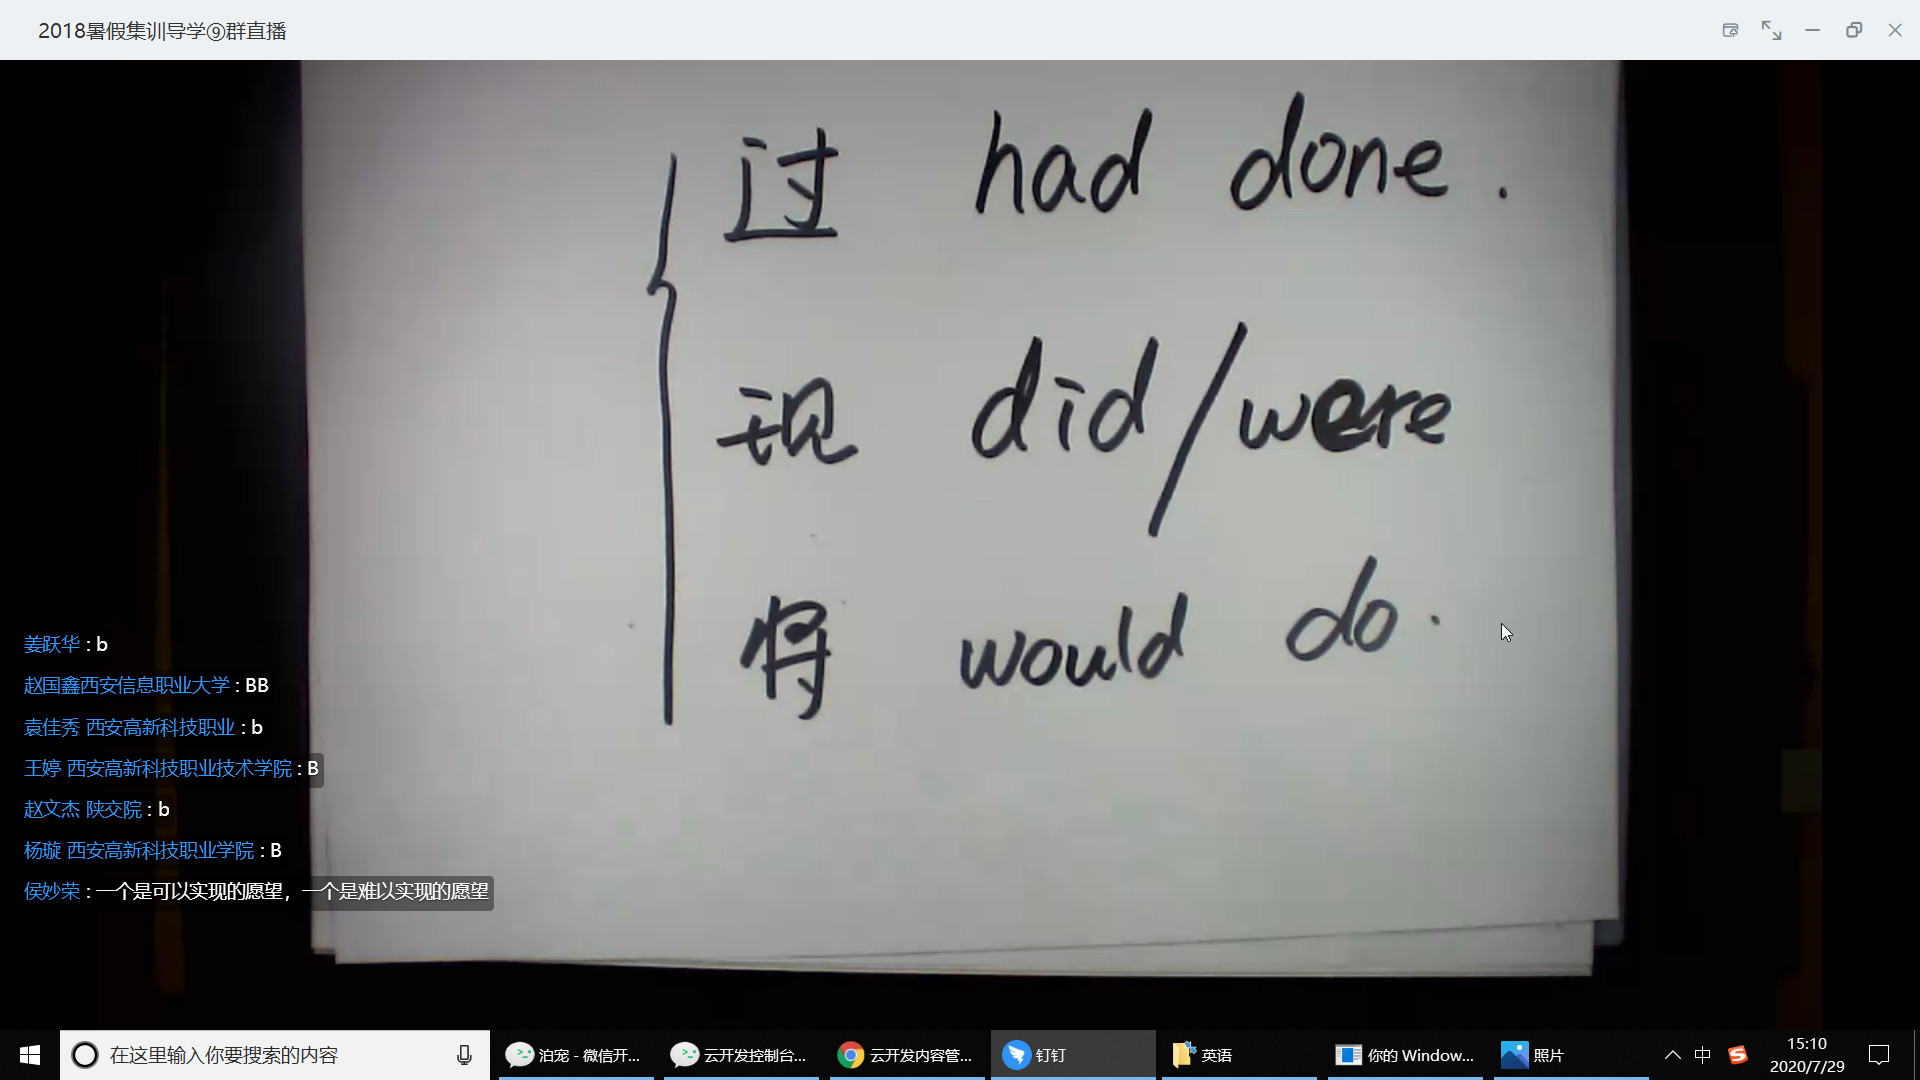 2018暑假集训导学⑨群直播
过 had done.
现 did/were
将 would do.
姜跃华 : b
赵国鑫西安信息职业大学 : BB
袁佳秀 西安高新科技职业 : b
王婷 西安高新科技职业技术学院 : B
赵文杰 陕交院 : b
杨璇 西安高新科技职业学院 : B
侯妙荣 : 一个是可以实现的愿望，一个是难以实现的愿望
在这里输入你要搜索的内容
泊宠 - 微信开...
云开发控制台...
云开发内容管...
钉钉
英语
你的 Window...
照片
中
15:10
2020/7/29